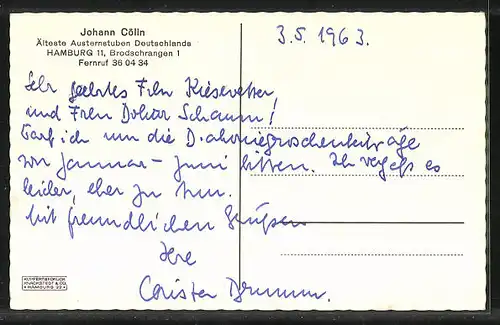 Johann Cölln
Älteste Austernstuben Deutschlands
HAMBURG 11, Brodschrangen 1
Fernruf 36 04 34
3.5.1963.
Sehr geehrtes Frln Kiesewetter,
und Frln Doktor Schramm!
Darf ich um die
von Januar – Juni bitten. Ich vergaß es
leider, eher zu tun.
Mit freundlichen Grüßen
Ihre
KUPFERTIEFDRUCK
KNACKSTEDT & CO.
HAMBURG 22